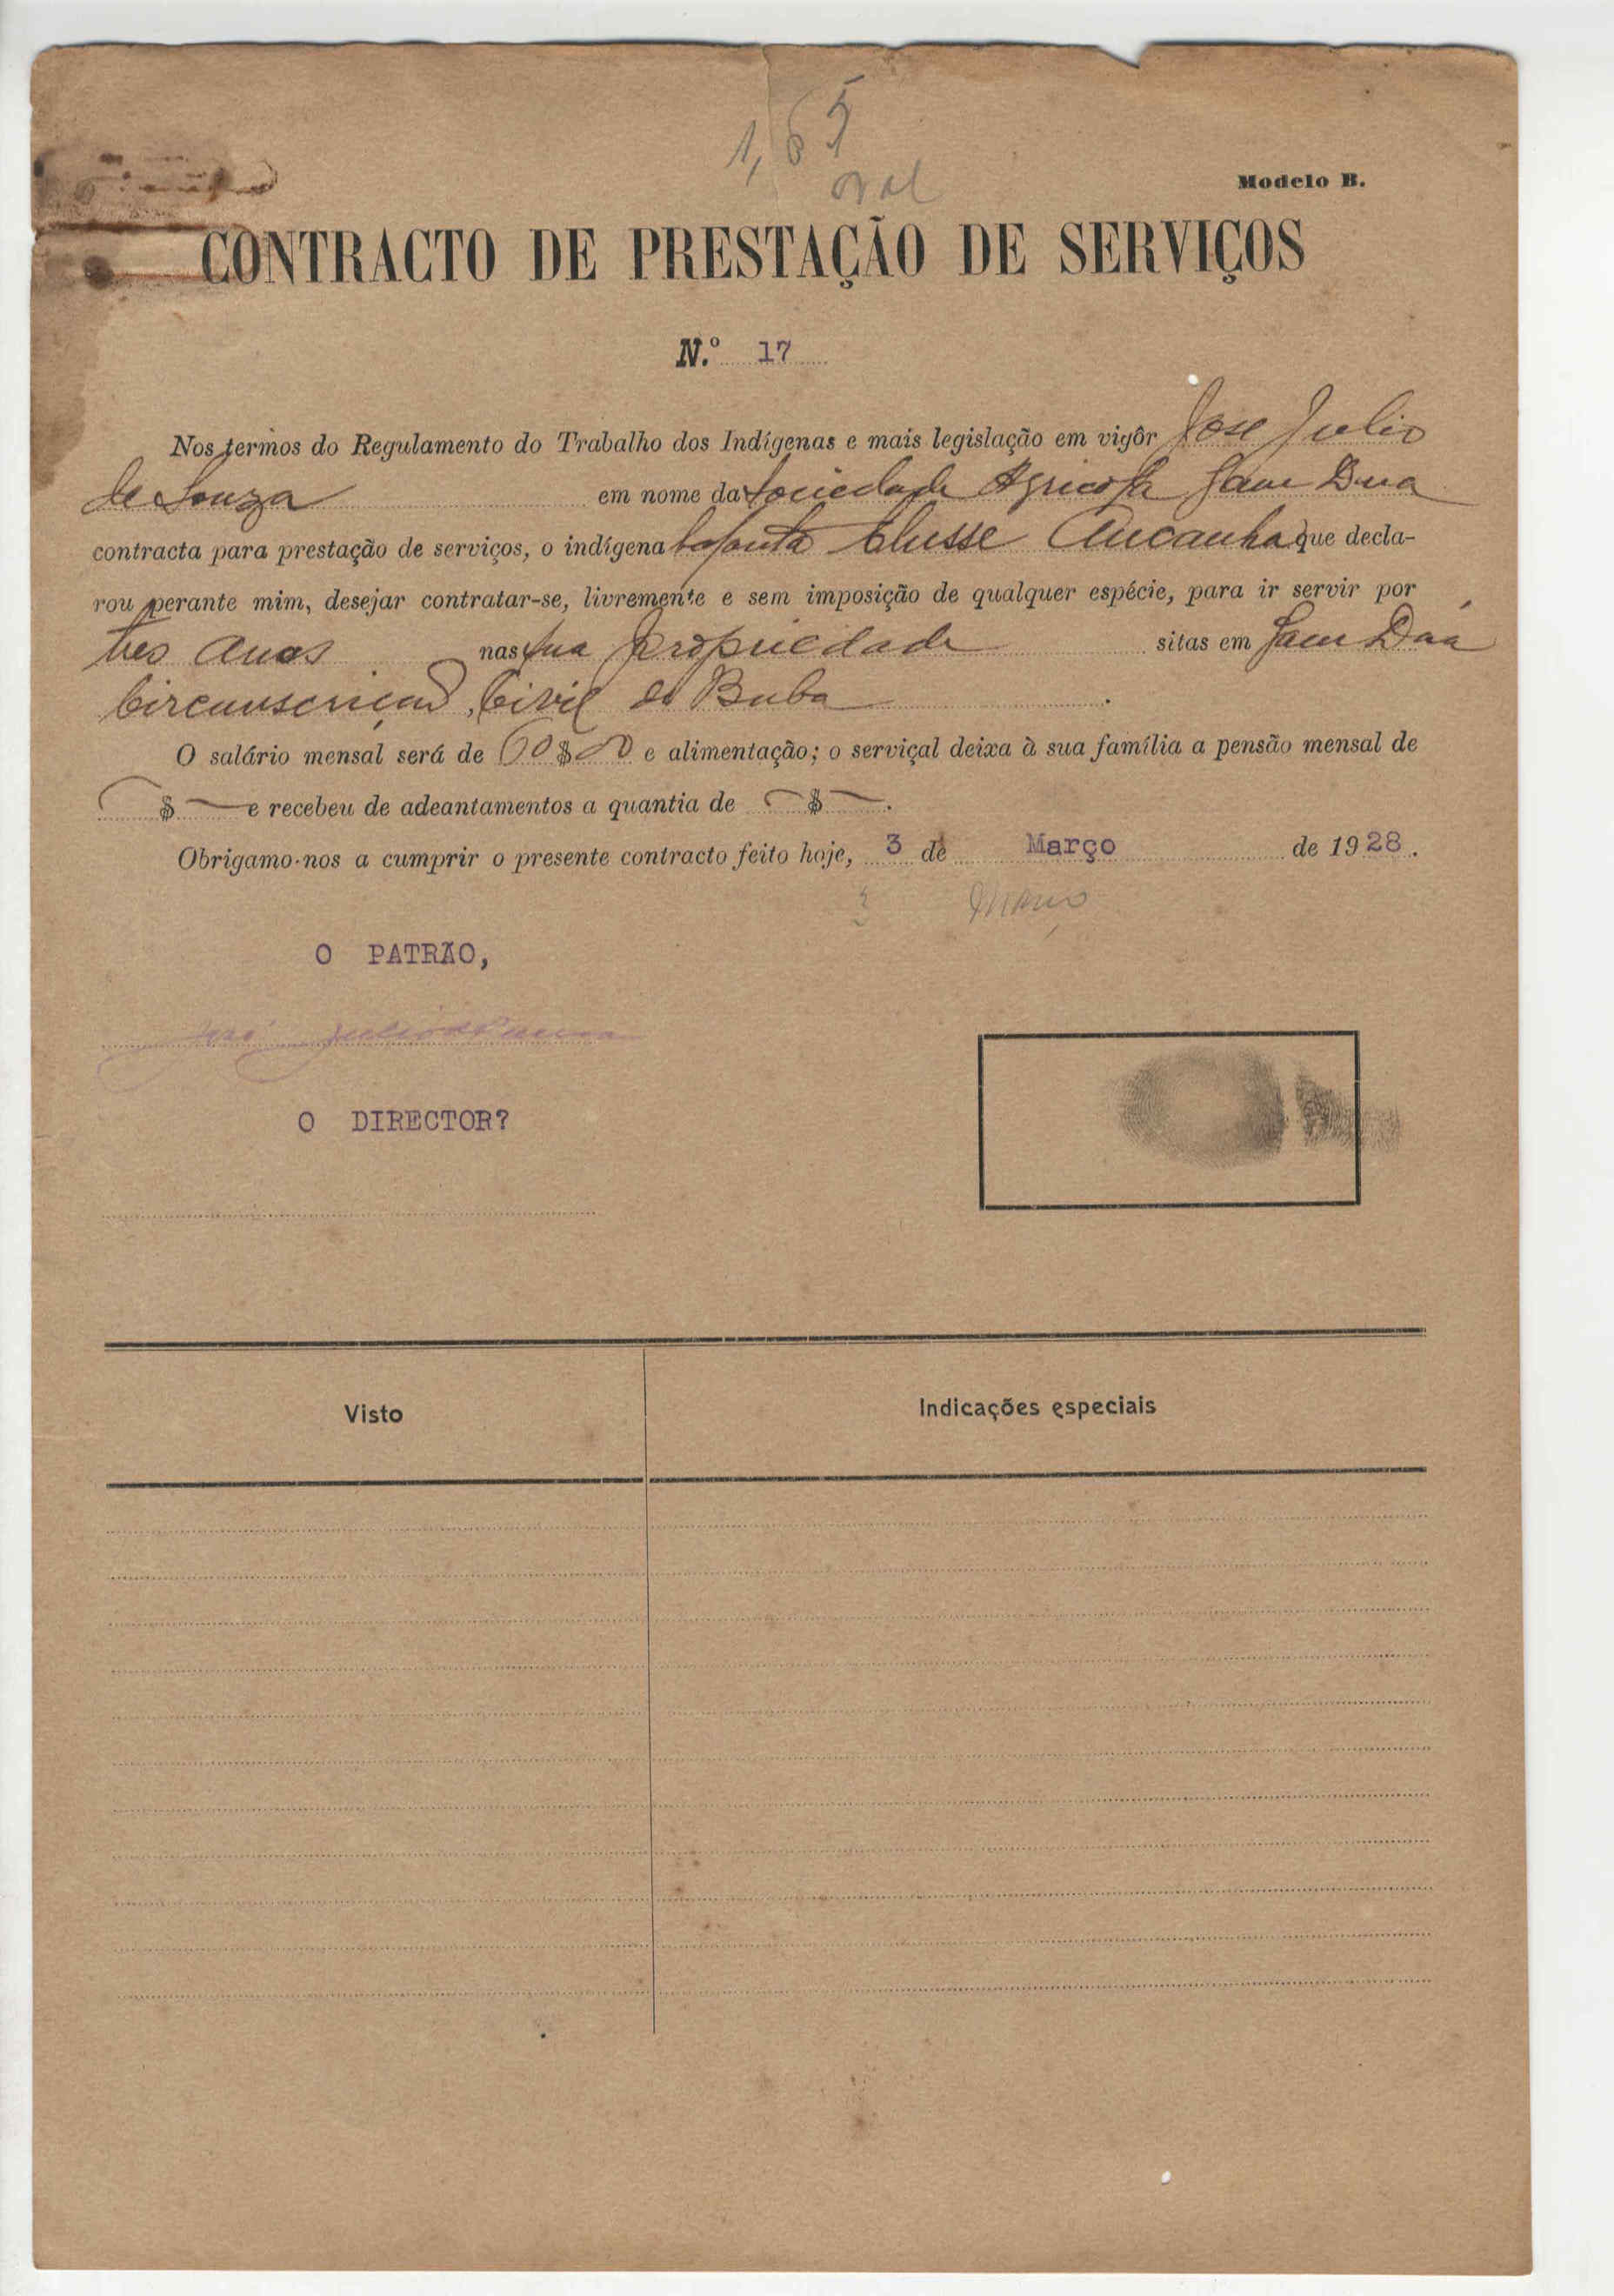 1,65
oval
Modelo B.
CONTRACTO DE PRESTAÇÃO DE SERVIÇOS
N.º 17
Nos termos do Regulamento do Trabalho dos Indígenas e mais legislação em vigôr Jose Julio
de Souza em nome da Sociedade Agricola Gam Dua
contracta para prestação de serviços, o indígena que decla-
rou perante mim, desejar contratar-se, livremente e sem imposição de qualquer espécie, para ir servir por
tres anos nas sua propriedade sitas em Gam Dua
Circunscrição Civil de Buba.
O salário mensal será de 60$00 e alimentação; o serviçal deixa à sua família a pensão mensal de
—$— e recebeu de adeantamentos a quantia de —$—.
Obrigamo-nos a cumprir o presente contracto feito hoje, 3 de Março de 1928.
3 Março
O PATRÃO,
José Julio de Souza
O DIRECTOR?
Visto Indicações especiais